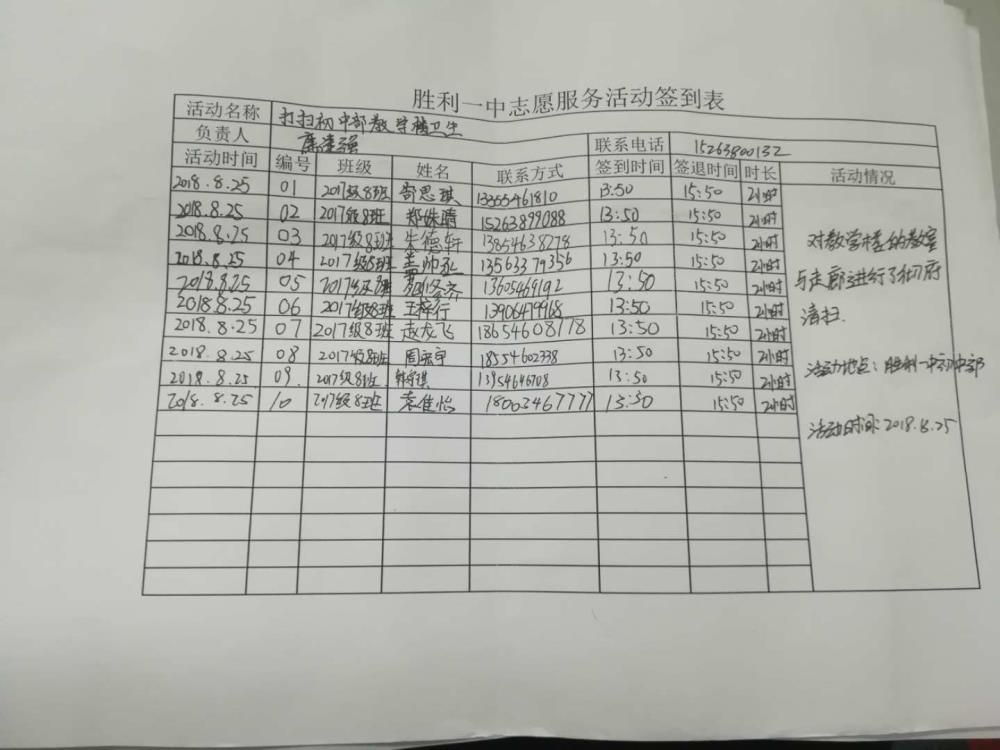 胜利一中志愿服务活动签到表
活动名称 打扫初中部教学楼卫生
负责人 联系电话 15263800132
活动时间 编号 班级 姓名 联系方式 签到时间 签退时间 时长 活动情况
2018.8.25 01 2017级8班 思琪 13355461810 13:50 15:50 2小时
2018.8.25 02 2017级8班 郑姝晴 15263899088 13:50 15:50 2小时
2018.8.25 03 2017级8班 朱德轩 13854638278 13:50 15:50 2小时
2018.8.25 04 2017级8班 盖帅丞 13563379356 13:50 15:50 2小时
2018.8.25 05 2017级8班 13605469192 13:50 15:50 2小时
2018.8.25 06 2017级8班 王梓行 13906479968 13:50 15:50 2小时
2018.8.25 07 2017级8班 赵龙飞 18654608778 13:50 15:50 2小时
2018.8.25 08 2017级8班 18554602338 13:50 15:50 2小时
2018.8.25 09 2017级8班 13954646708 13:50 15:50 2小时
2018.8.25 10 2017级8班 袁佳怡 18003467777 13:50 15:50 2小时
对教学楼的教室
与走廊进行了彻底
清扫.
活动地点：胜利一中初中部
活动时间:2018.8.25